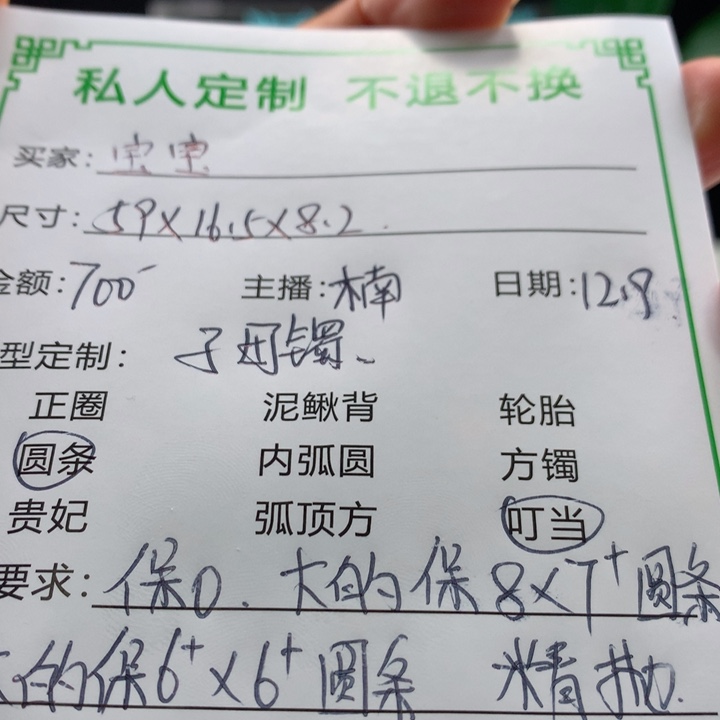 私人定制 不退不换
买家：宝宝
尺寸：59X16.5X8.2
金额：700 主播：楠 日期：12.9
型定制：子母镯
正圈 泥鳅背 轮胎
圆条 内弧圆 方镯
贵妃 弧顶方 叮当
要求：保0.大的保8X7+圆条
的保6+X6+圆条 精抛.